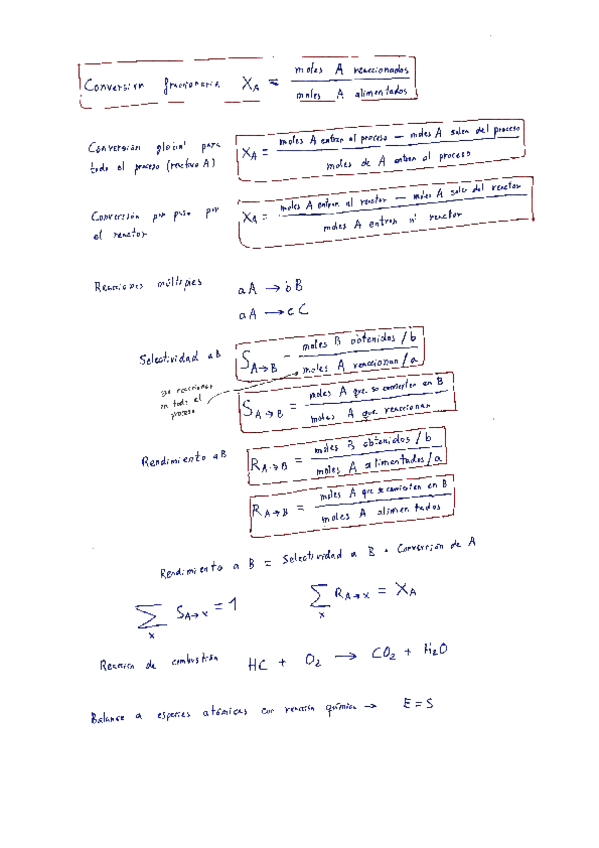 Conversión fraccionaria X_A = moles A reaccionados / moles A alimentados
Conversión global para
todo el proceso (reactivo A)
X_A = moles A entran al proceso — moles A salen del proceso / moles de A entran al proceso
Conversión por paso por
el reactor
X_A = moles A entran al reactor — moles A salen del reactor / moles A entran al reactor
Reacciones múltiples
aA → bB
aA → cC
Selectividad a B
S_A→B = moles B obtenidos / b / moles A reaccionan / a
que reaccionan
en todo el
proceso
S_A→B = moles A que se convierten en B / moles A que reaccionan
Rendimiento a B
R_A→B = moles B obtenidos / b / moles A alimentados / a
R_A→B = moles A que se convierten en B / moles A alimentados
Rendimiento a B = Selectividad a B · Conversión de A
∑_x S_A→x = 1
∑_x R_A→x = X_A
Reacción de combustión HC + O2 → CO2 + H2O
Balance a especies atómicas con reacción química → E = S